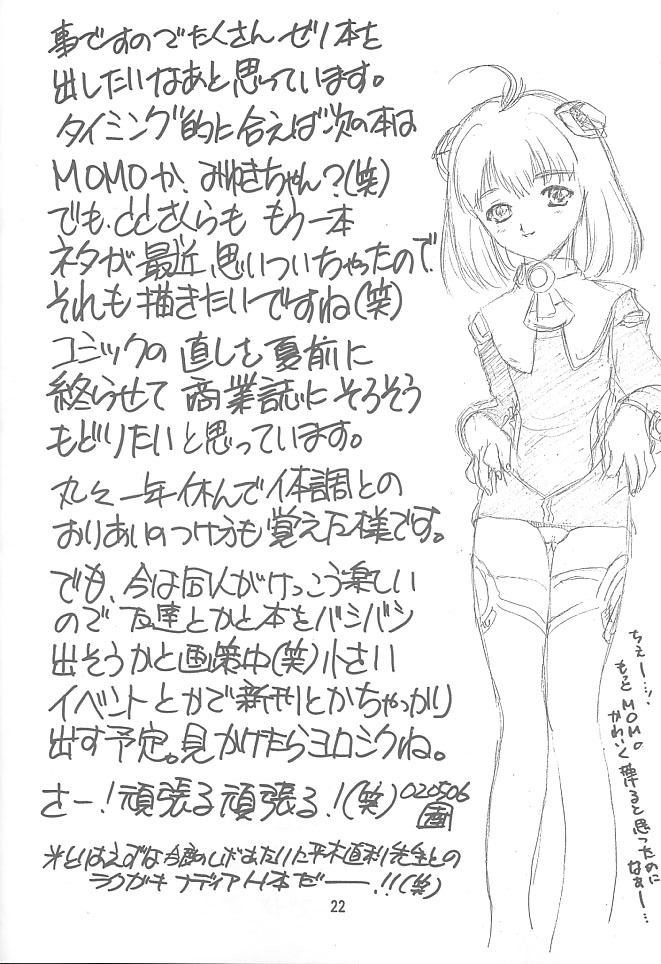 事ですのでたくさん ゼノ本を
出したいなあと思っています。
タイミング的に合えば次の本は
MOMOか、みゆきちゃん?(笑)
でも、ccさくらも もう一本
ネタが最近、思いついちゃったので、
それも描きたいですね(笑)
コミックの直しを夏前に
終らせて 商業誌にそろそろ
もどりたいと思っています。
丸々一年休んで体調との
おりあいのつけ方も覚えた様です。
でも、今は同人がけっこう楽しい
ので 友達とかと本をバシバシ
出そうかと画策中(笑)小さい
イベントとかで新刊とかちゃっかり
出す予定。見かけたらヨロシクね。
さー!頑張る頑張る!(笑)020506
※とりあえずは今度の 平木直利先生との
ラクガキ ナディアH本だーー!!(笑)
ちぇー…
もっとMOMO
かわいく
描けると思ったのに
なぁー…
22